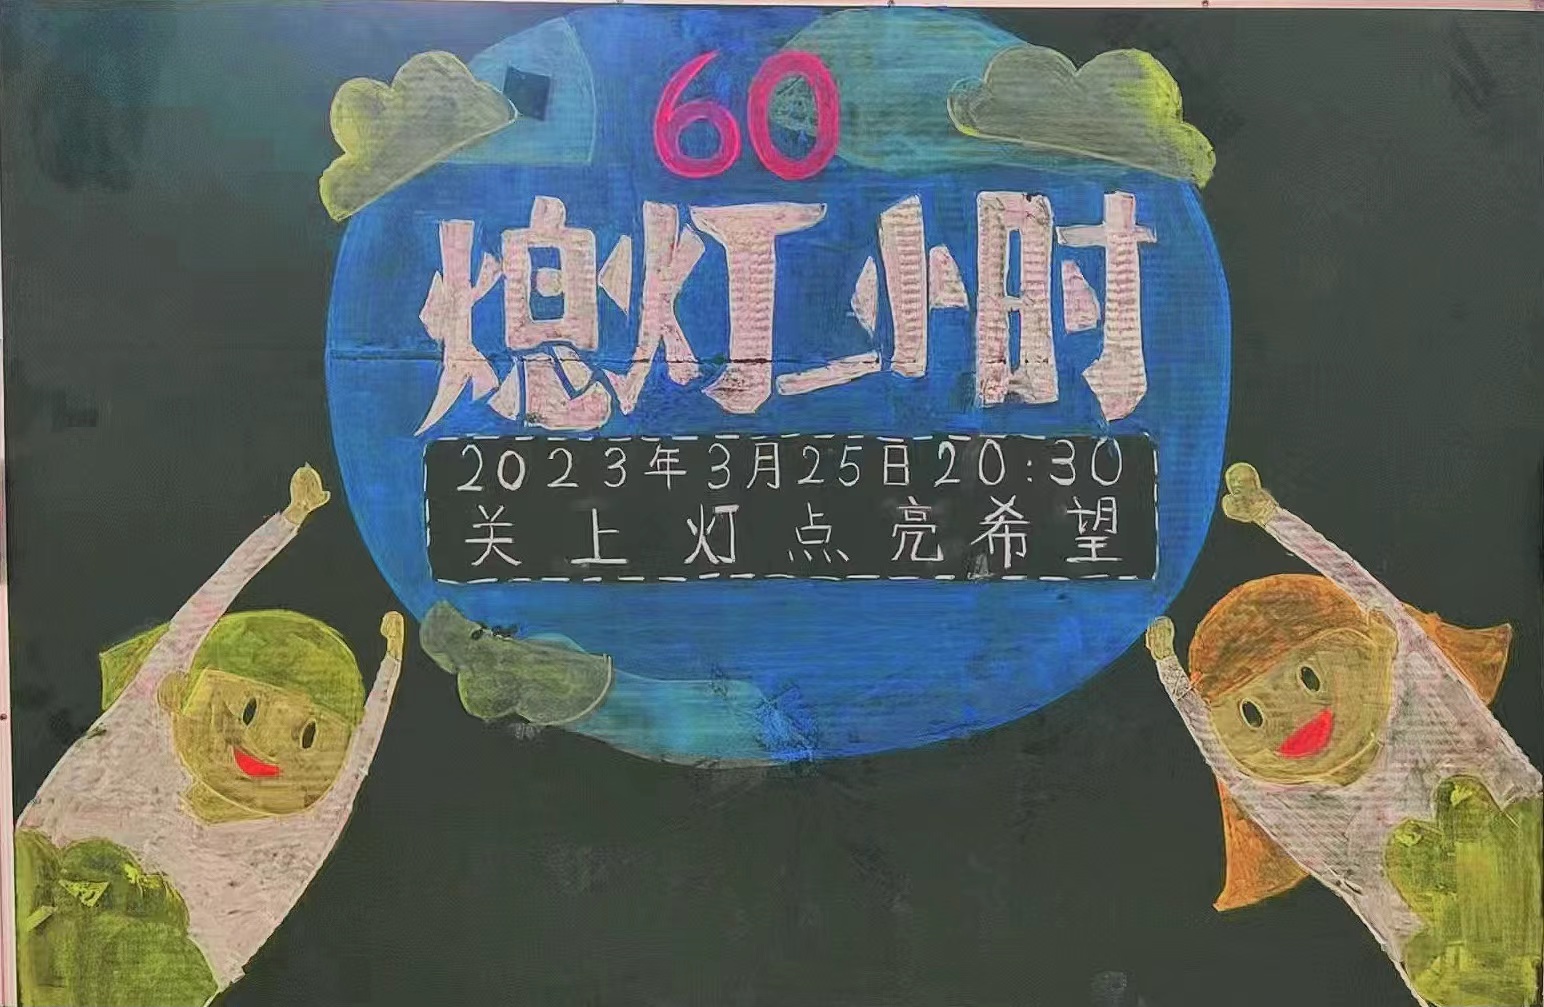 60
熄灯小时
2023年3月25日20:30
关上灯点亮希望